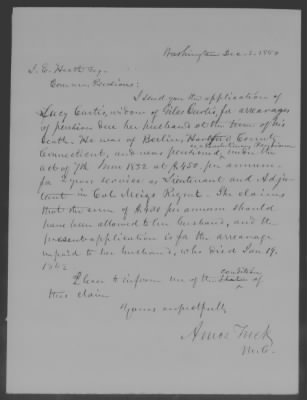 Washington Dec. 2. 1850
J. E. Heath Esq.
Com. on Pensions:
I send you the application of
Lucy Curtis, widow of Giles Curtis, for arrearages
of pension due her husband at the time of his
death. He was of Berlin, Hartford County
Connecticut, and was pensioned, under the
act of 7th June 1832 at $450. per annum
for 2 years service as Lieutenant and Adju
tant in Col Meigs Regmt. She claims
that the sum of per annum should
have been allowed to her husband, and the
present application is for the arrearage
unpaid to her husband, who died Jan 19.
condition
Please to inform me of the of
this claim
Yours respectfully
Amos Tuck
M.C.